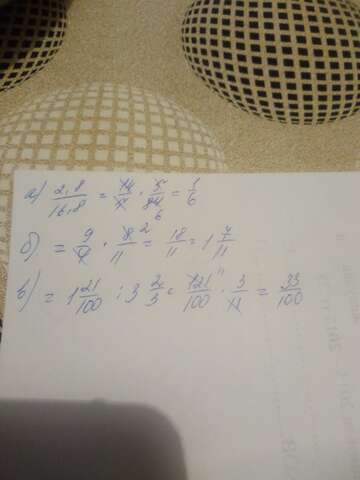 а) 2,8/16,8 = 14/5 · 5/84 6 = 1/6
б) = 9/4 · 8/11 2 = 18/11 = 1 7/11
в) = 1 21/100 : 3 2/3 = 121/100 11 · 3/11 = 33/100